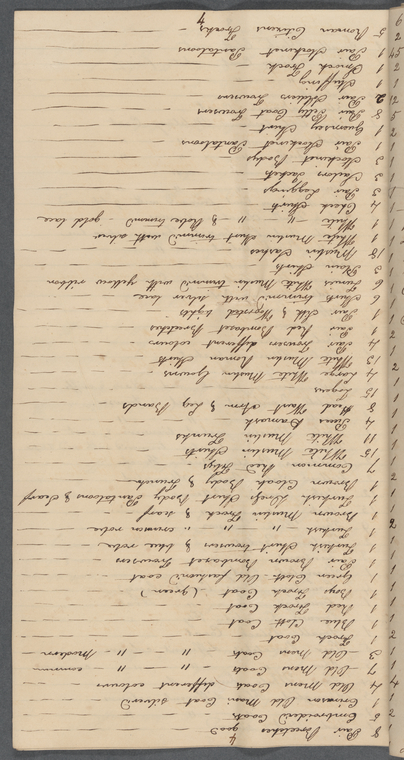 4
8 Pair Breeches good
5 Embroider'd Coats
1 Crimson Old Mans Coat silver'd
4 Old Mens Coats different colours
7 Old Mens Coats " " common
3 Old Mens Coats " " modern
1 Frock Coat
1 Blue Cloth Coat
1 Red Frock Coat
1 Boys Frock Coat (green)
1 Green Cloth Old fashion'd coat
1 Pair Brown Bombazet Trowsers
1 Turkish Shirt trowsers & blue robe
1 Turkish " " " crimson robe
1 Brown Muslin Frock & scarf
1 Turkish Dress Shirt Body Pantaloons & scarf
1 Brown Cloak Body & Trunks
7 Common Red Flys
15 White Muslin Shirts
11 White Muslin Trunks
4 Pieces Damask
8 Bead Waist Arm & Leg Bands
15 Togas
4 Large White Muslin Gowns
13 White Muslin Roman Shirts
4 Pair Trowsers different colours
1 Pair Red Bombazet Breeches
Pair Silk & Worsted tights
6 Shirts trimm'd with silver lace
6 Tunics White Muslin trimm'd with yellow ribbon
3 Plain Shirts
18 Muslin Sashes
1 White Muslin Shirt trimm'd with silver
1 White " " & Robe trimm'd gold lace
4 Check Shirts
3 Pair Leggings
3 Sailors Jackets
3 Stockinet Bodys
1 Pair Stockinet Pantaloons
1 Guernsey Shirt
8 Pair Petty Coat Trowsers
2 Pair Soldiers Trowsers
1 Stuffing
1 Smock Frock
1 Pair Stockinet Pantaloons
5 Roman Citizens Frocks
4